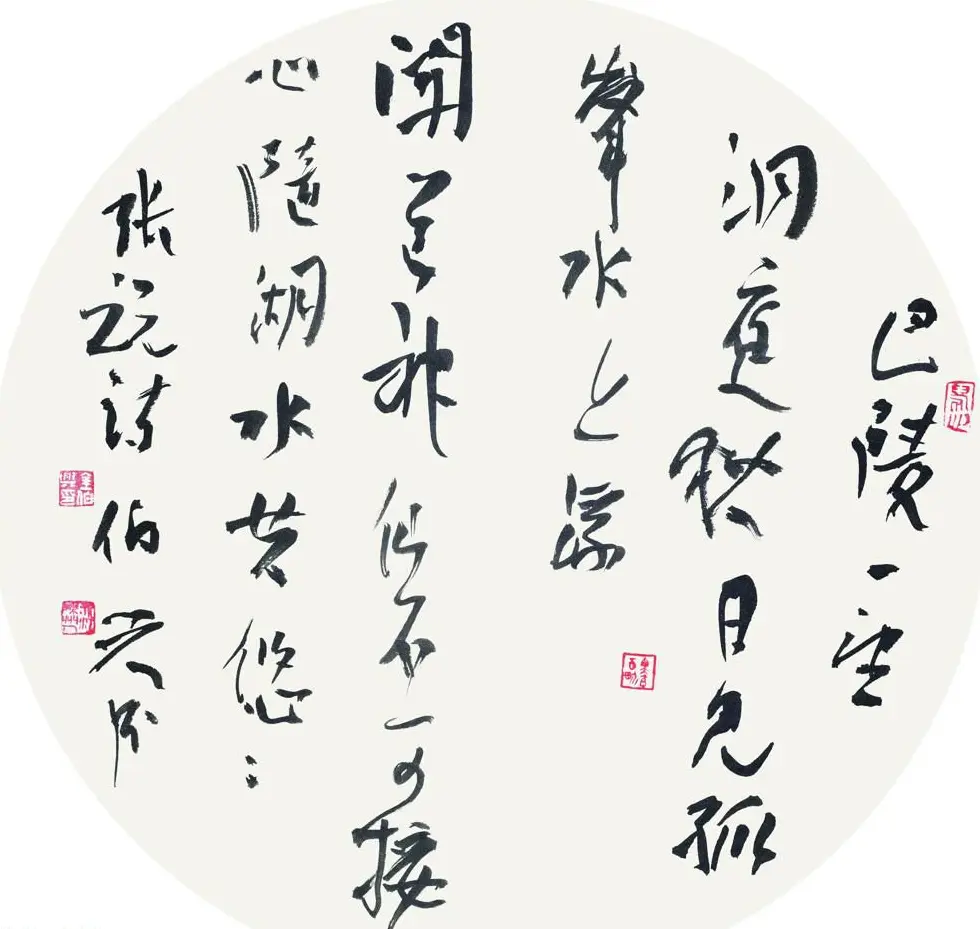 巴陵一望
洞庭秋日见孤
峯水上浮
聞道神仙不可接
心隨湖水共悠々
张説诗伯兴书